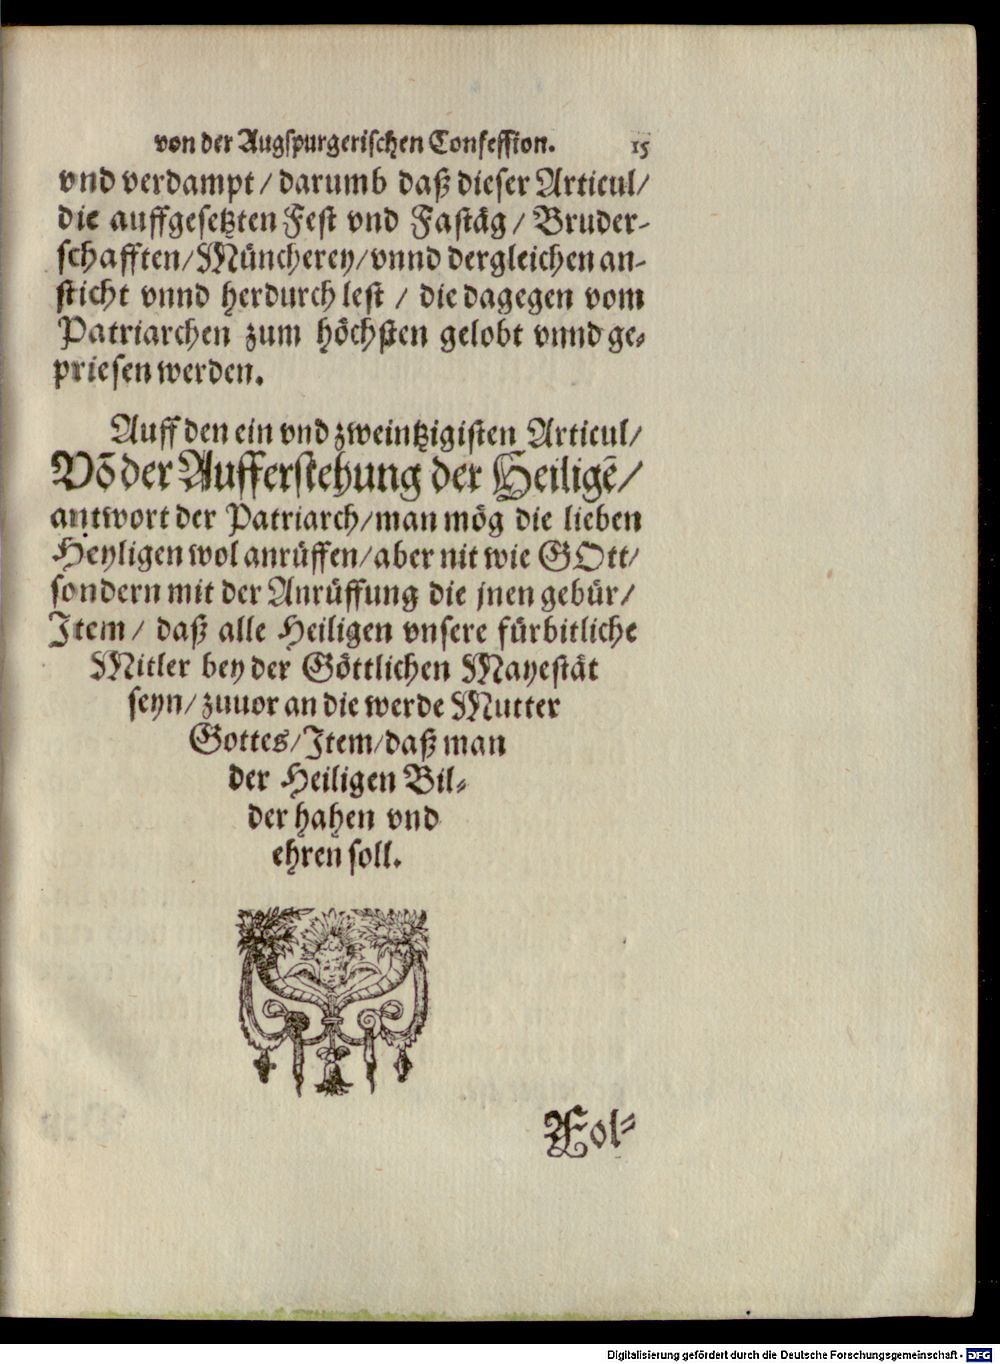 von der Augspurgerischen Confession. 15
vnd verdampt / darumb daß dieser Articul /
die auffgesetzten Fest vnd Fastäg / Bruder-
schafften / Müncherey / vnnd dergleichen an-
sticht vnnd herdurch lest / die dagegen vom
Patriarchen zum höchsten gelobt vnnd ge-
priesen werden.
Auff den ein vnd zweintzigisten Articul /
Võ der Aufferstehung der Heiligẽ /
antwort der Patriarch / man mög die lieben
Heyligen wol anrüffen / aber nit wie GOtt /
sondern mit der Anrüffung die jnen gebür /
Item / daß alle Heiligen vnsere fürbitliche
Mitler bey der Göttlichen Mayestät
seyn / zuuor an die werde Mutter
Gottes / Item / daß man
der Heiligen Bil-
der hahen vnd
ehren soll.
Fol-
Digitalisierung gefördert durch die Deutsche Forschungsgemeinschaft - DFG